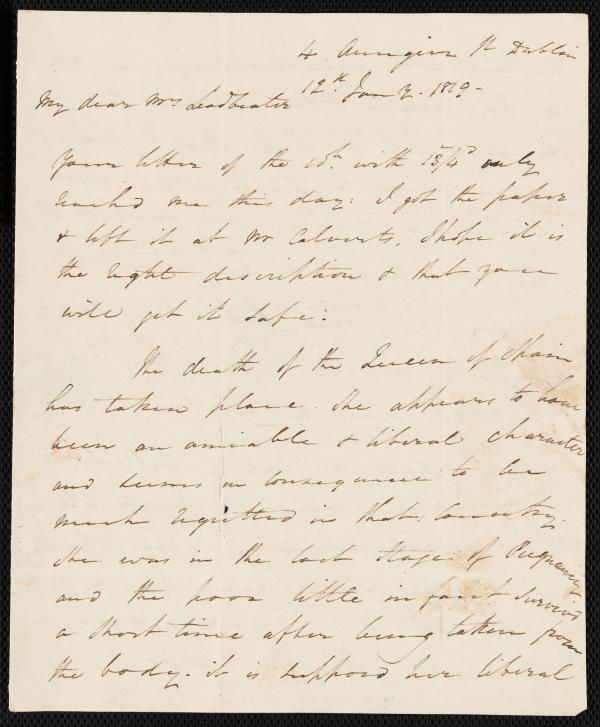 4 Aungier St Dublin
12th Jany. 1819-
My dear Mrs Leadbeater
Your letter of the 10th. with 13/4d only
reached me this day: I got the paper
& left it at Mr Calverts, I hope it is
the right description & that you
will get it safe:
The death of the Queen of Spain
has taken place. She appears to have
been an amiable & liberal character
and seems in consequence to be
much regretted in that Country.
She was in the last stage of Pregnancy
and the poor little infant survived
a short time after being taken from
the body. it is supposd her liberal